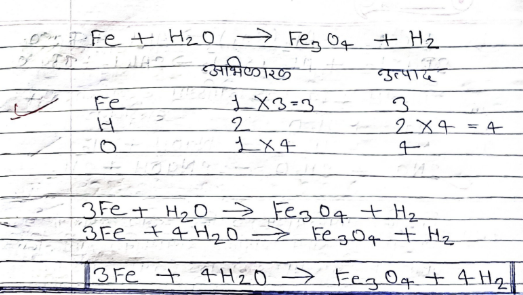 Fe + H₂O → Fe₃O₄ + H₂
अभिकारक उत्पाद
Fe 1 × 3 = 3 3
H 2 2 × 4 = 4
O 1 × 4 4
3Fe + H₂O → Fe₃O₄ + H₂
3Fe + 4H₂O → Fe₃O₄ + H₂
3Fe + 4H₂O → Fe₃O₄ + 4H₂